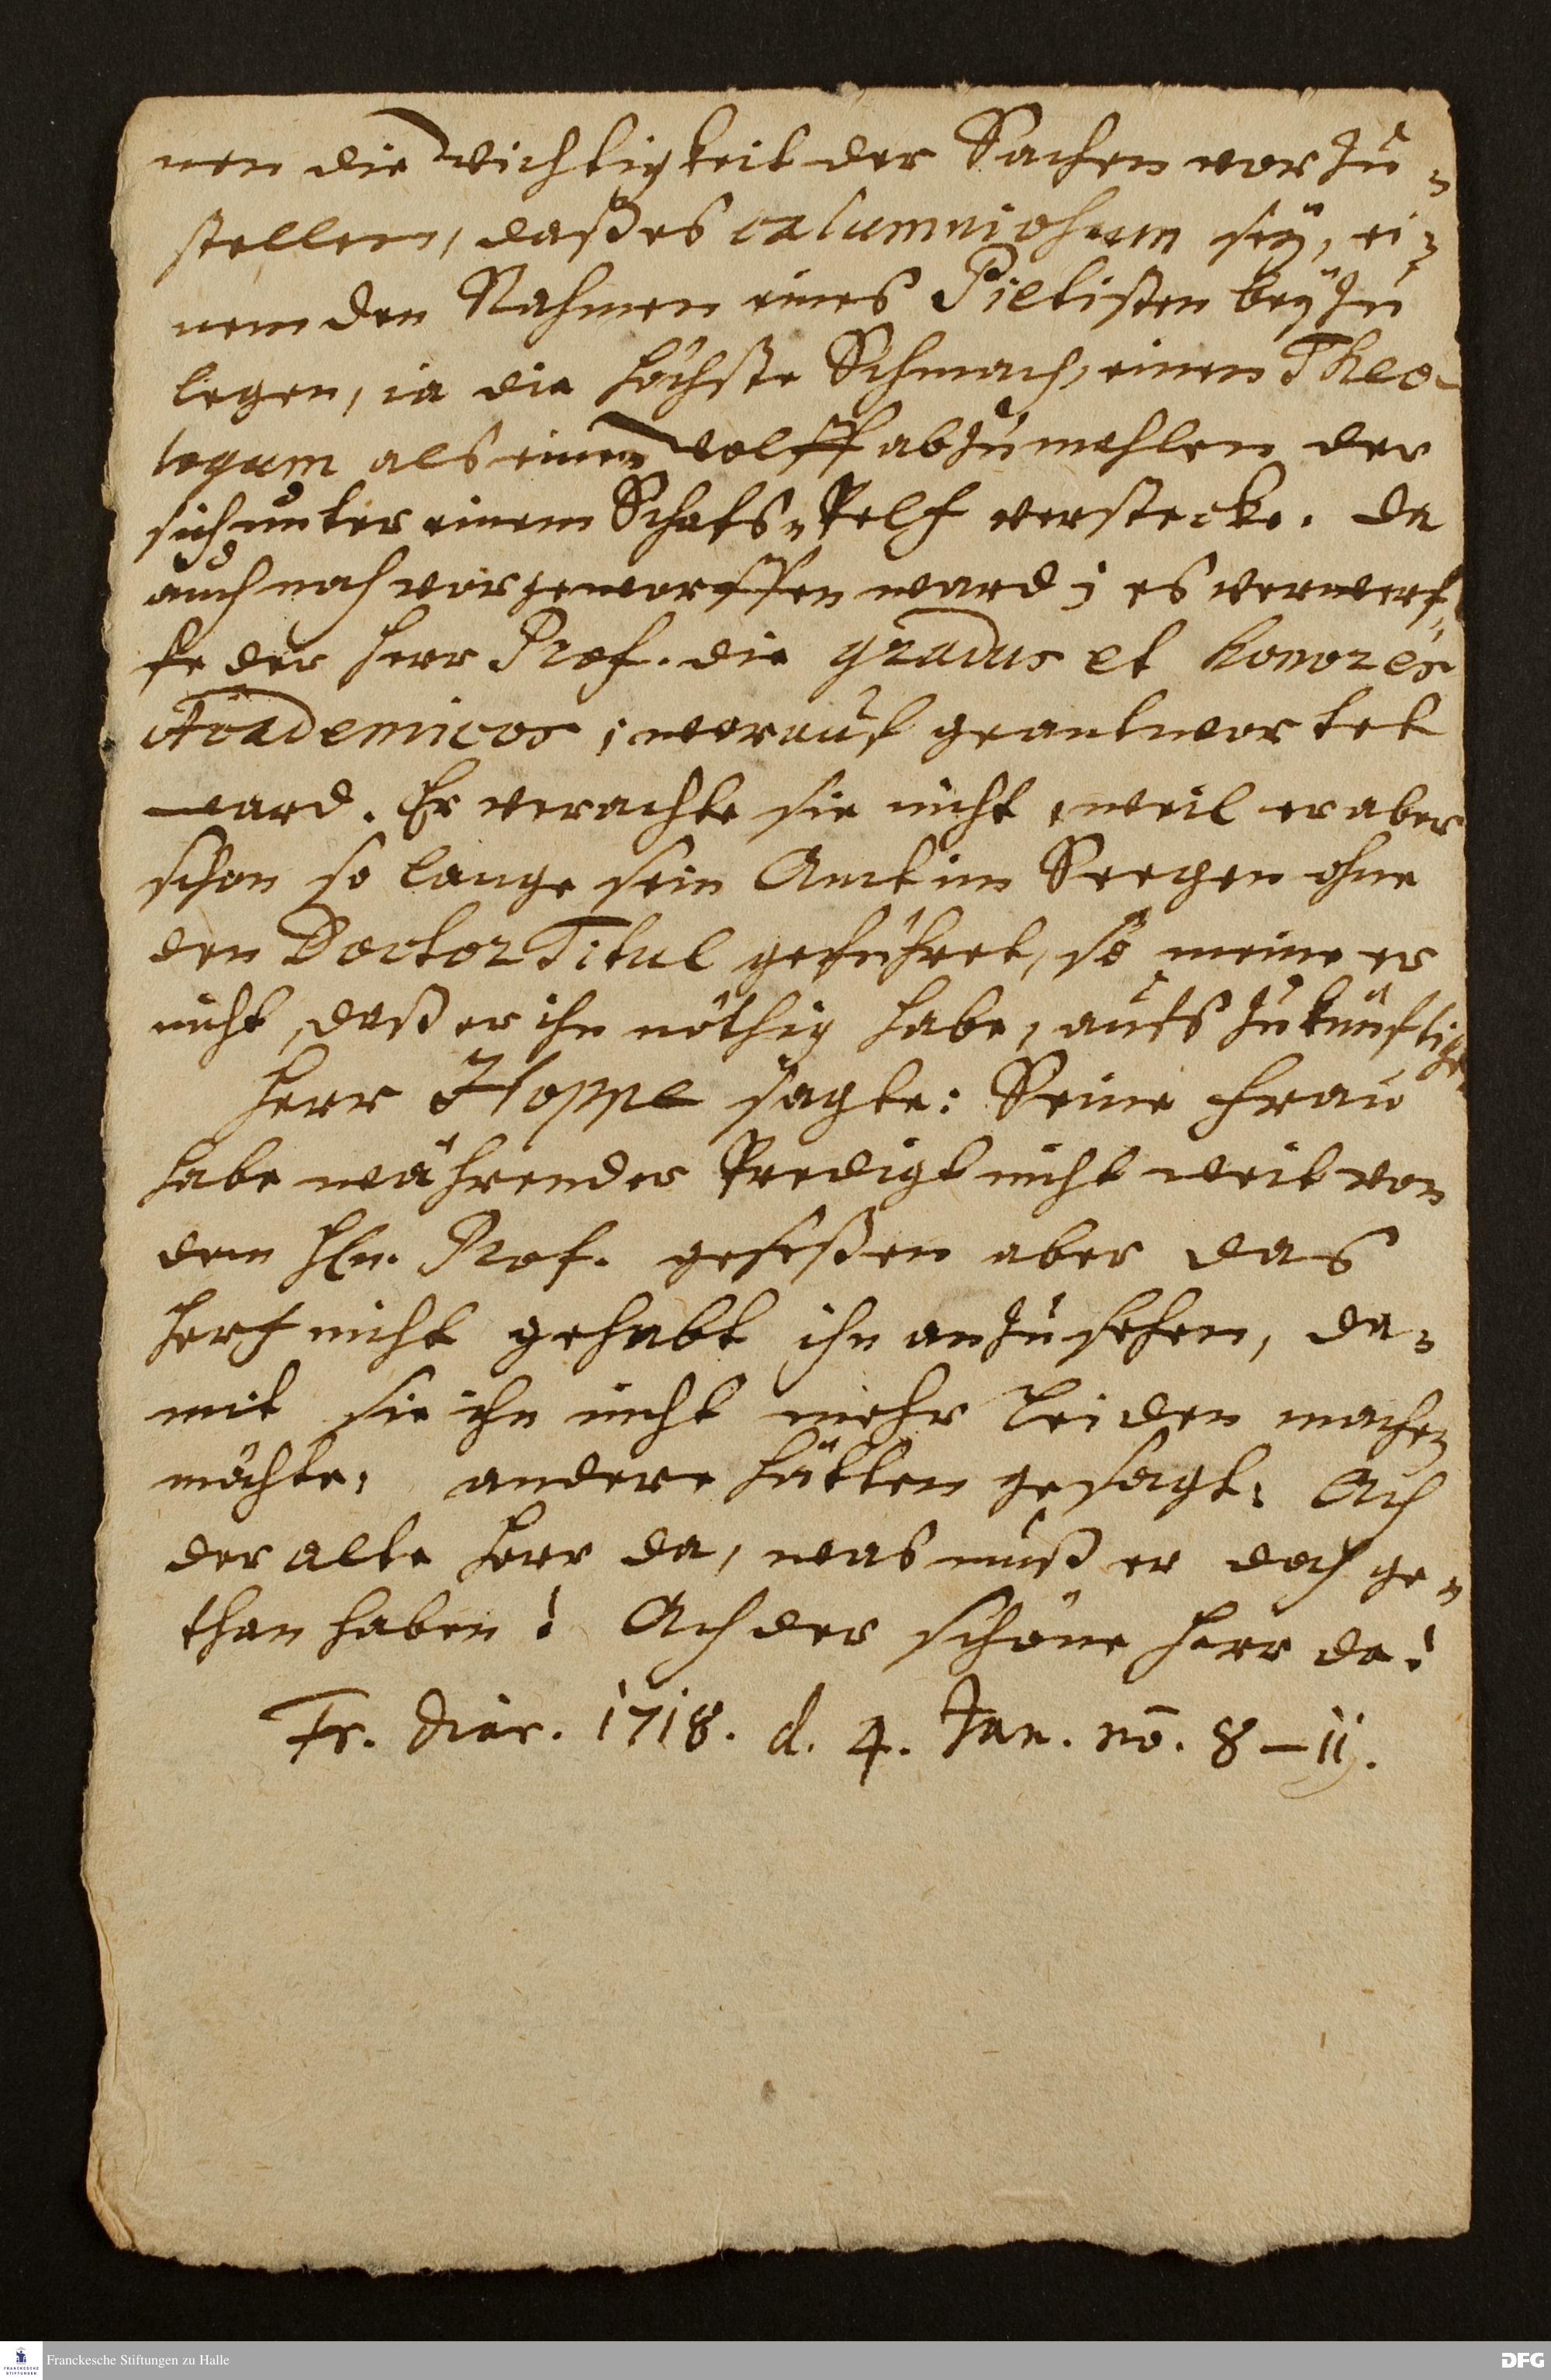 nen die Wichtigkeit der Sachen vorzu-
stellen, daß es calumniosum sey, ei-
nem den Nahmen eines Pietisten beyzu
legen, ia die höchste Schmach, einen Theo-
logum als einen Wolff abzumahlen der
sich unter einem Schafs-Peltz verstecke. Da
auch noch vorgeworffen ward; es verwerf-
fe der Herr Prof. die gradus et honores
Academicos; worauf geantwortet
ward. Er verachte sie nicht, weil er aber
schon so lange sein Amt im Seegen ohne
den Doctor Titul geführet, so meine er
nicht, daß er ihn nöthig habe, aufs zukünftige.
Herr Hoppe sagte: Seine Frau
habe währender Predigt nicht weit von
dem Hln. Prof. geseßen aber das
Hertz nicht gehabt ihn anzusehen, da-
mit sie ihn nicht mehr Leiden machen
möchte; andere hätten gesagt: Ach
der alte Herr da, was muß er doch ge-
than haben! Ach der schöne Herr da!
Fr. Diar. 1718. d. 4. Jan. no. 8-11.
Franckesche Stiftungen zu Halle
FRANCKESCHE STIFTUNGEN
DFG